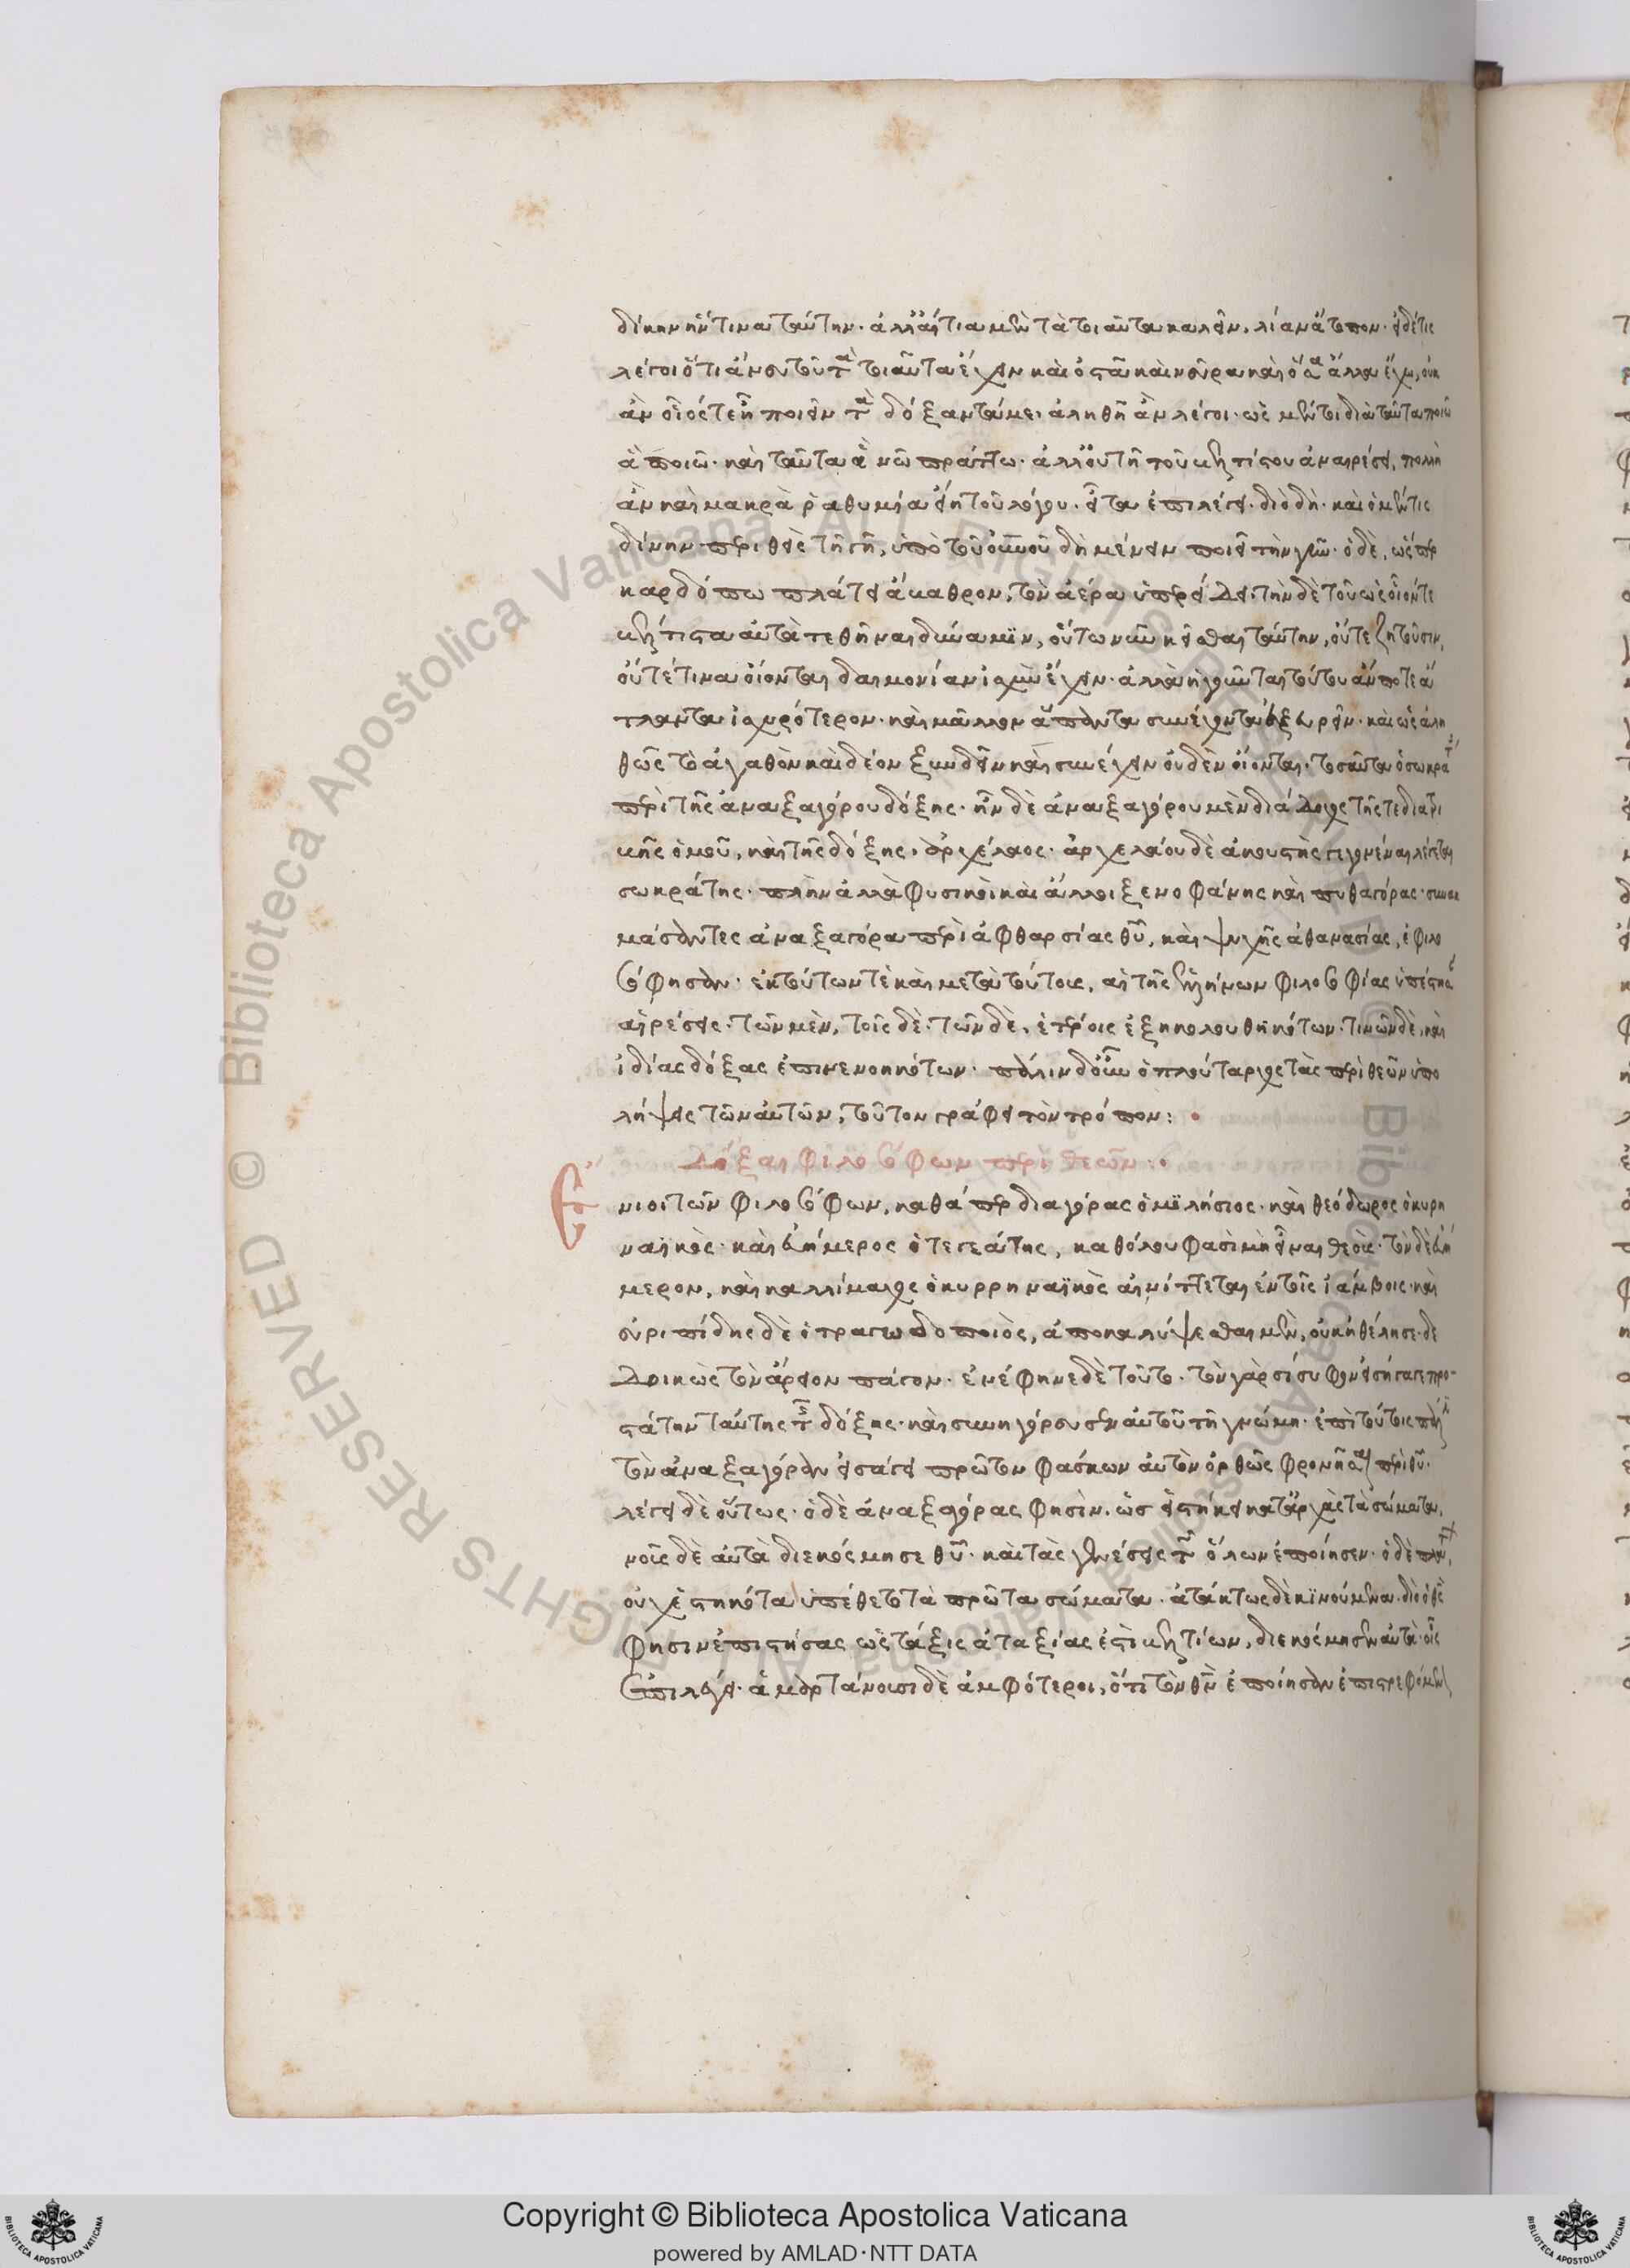 δίκην ἥντινα ταύτην. ἀλλ' αἴτια μὲν τὰ τοιαῦτα καλεῖν, λίαν ἄτοπον. εἰ δέ τις
λέγοι ὅτι ἄνευ τοῦ τὰ τοιαῦτα ἔχειν καὶ ὀστᾶ καὶ νεῦρα καὶ ὅσα ἄλλα ἔχω, οὐκ
ἂν οἷός τε ἦν ποιεῖν τὰ δόξαντά με. ἀληθῆ ἂν λέγοι. ὡς μέντοι διὰ ταῦτα ποιῶ
ἃ ποιῶ. καὶ ταῦτα νῷ πράττω. ἀλλ' οὐ τῇ τοῦ βελτίστου αἱρέσει, πολλὴ
ἂν καὶ μακρὰ ῥαθυμία εἴη τοῦ λόγου. εἶτα ἐπιλέγει. διὸ δὴ. καὶ ὁ μέν τις
δίνην περιθεὶς τῇ γῇ, ὑπὸ τοῦ οὐρανοῦ δὴ μένειν ποιεῖ τὴν γῆν. ὁ δὲ, ὥσπερ
καρδόπω πλάτει ἄκαθρον, τὸν ἀέρα ὑπερείδει. τὴν δὲ τοῦ ὡς οἷόν τε
βέλτιστα αὐτὰ τεθῆναι δύναμιν, οὕτω νῦν κεῖσθαι ταύτην, οὔτε ζητοῦσιν,
οὔτέ τινα οἴονται δαιμονίαν ἰσχὺν ἔχειν. ἀλλὰ ἡγοῦνται τούτου ἄν ποτε ἄ
τλαντα ἰσχυρότερον. καὶ μᾶλλον ἅπαντα συνέχοντα ἐξευρεῖν. καὶ ὡς ἀλη
θῶς τὸ ἀγαθὸν καὶ δέον ξυνδεῖν καὶ συνέχειν οὐδὲν οἴονται. τοσαῦτα ὁ σωκράτης
περὶ τῆς ἀναξαγόρου δόξης. ἦν δὲ ἀναξαγόρου μὲν διάδοχος τῆς τε διατρι
βῆς ὁμοῦ, καὶ τῆς δόξης, ἀρχέλαος. ἀρχελάου δὲ ἀκουστὴς γεγονέναι λέγεται
σωκράτης. πλὴν ἀλλὰ φυσικοὶ καὶ ἄλλοι ξενοφάνης καὶ πυθαγόρας. συνακ
μάσαντες ἀναξαγόρα περὶ ἀφθαρσίας θεοῦ, καὶ ψυχῆς ἀθανασίας, ἐφιλο
σόφησαν. ἐκ τούτων τὲ καὶ μετὰ τούτους, αἱ τῆς ἑλλήνων φιλοσοφίας ὑπέστησαν
αἱρέσεις. τῶν μὲν, τοῖς δὲ. τῶν δὲ, ἑτέροις ἐξηκολουθηκότων. τινῶν δὲ, καὶ
ἰδίας δόξας ἐπινενοηκότων. πάλιν δ' οὖν ὁ πλούταρχος τὰς περὶ θεῶν ὑπο
λήψεις τῶν αὐτῶν, τοῦτον γράφει τὸν τρόπον:
Δόξαι φιλοσόφων περὶ θεῶν:
Ἔνιοι τῶν φιλοσόφων, καθάπερ διαγόρας ὁ μιλήσιος. καὶ θεόδωρος ὁ κυρη
ναϊκὸς. καὶ εὐήμερος ὁ τεγεάτης, καθόλου φασὶ μὴ εἶναι θεοὺς. τὸν δὲ εὐή
μερον, καὶ καλλίμαχος ὁ κυρρηναϊκὸς αἰνίττεται ἐν τοῖς ἰάμβοις. καὶ
εὐριπίδης δὲ ὁ τραγωδοποιὸς, ἀποκαλύψεσθαι μὲν, οὐκ ἠθέλησε. δε
δοικὼς τὸν ἄρειον πάγον. ἐνέφηνε δὲ τοῦτο. τὸν γὰρ σίσυφον εἰσήγαγε προ-
στάτην ταύτης τῆς δόξης. καὶ συνηγόρευσεν αὐτοῦ τῇ γνώμη. ἐπὶ τούτοις πάλιν
τὸν ἀναξαγόραν εἰσάγει πρῶτον φάσκων αὐτὸν ὀρθῶς φρονῆσαι περὶ θεοῦ.
λέγει δὲ οὕτως. ὁ δὲ ἀναξαγόρας φησὶν. ὡς εἱστήκει κατ' ἀρχὰς τὰ σώματα,
νοῦς δὲ αὐτὰ διεκόσμησε θεοῦ. καὶ τὰς γενέσεις τῶν ὅλων ἐποίησεν. ὁ δὲ πλάτων,
οὐχ ἑστηκότα ὑπέθετο τὰ πρῶτα σώματα. ἀτάκτως δὲ κινούμενα. διὸ ὁ θεὸς
φησιν ἐπιστήσας ὡς τάξις ἀταξίας ἐστὶ βελτίων, διεκόσμησεν αὐτὰ. οἷς
ἐπιλέγει. ἁμαρτάνουσι δὲ ἀμφότεροι, ὅτι τὸν θεὸν ἐποίησαν ἐπιστρεφόμενον